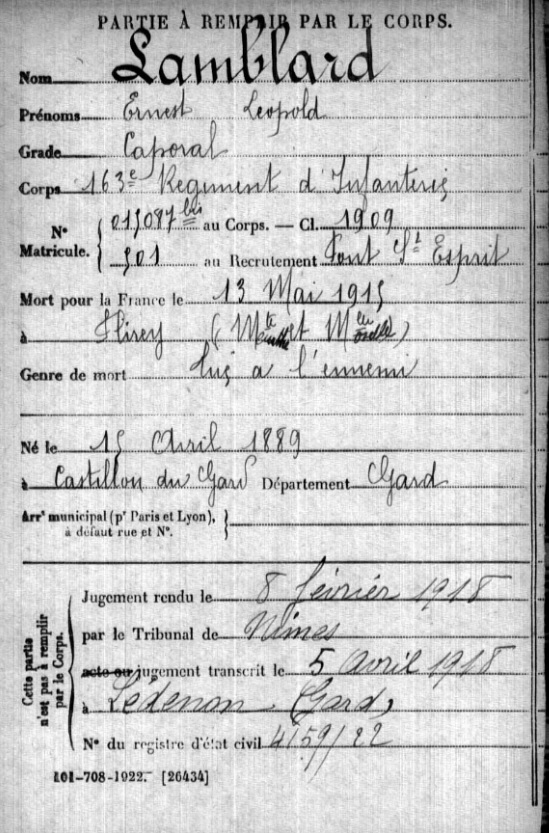 PARTIE À REMPLIR PAR LE CORPS.
Nom Lamblard
Prénoms Ernest Leopold
Grade Caporal
Corps 163e Régiment d'Infanterie
N° Matricule. { 015087 bis au Corps. — Cl. 1909
501 au Recrutement Pont St Esprit
Mort pour la France le 13 Mai 1915
à Flirey (Mthe et Mlle)
Genre de mort Tué a l'ennemi
Né le 15 Avril 1889
à Castillon du Gard Département Gard
Arrt municipal (pr Paris et Lyon), }
à défaut rue et N°.
Cette partie n'est pas à remplir par le Corps. {
Jugement rendu le 8 février 1918
par le Tribunal de Nimes
acte ou jugement transcrit le 5 Avril 1918
à Ledenon (Gard)
N° du registre d'état civil 4159/22
101-708-1922. [26434]